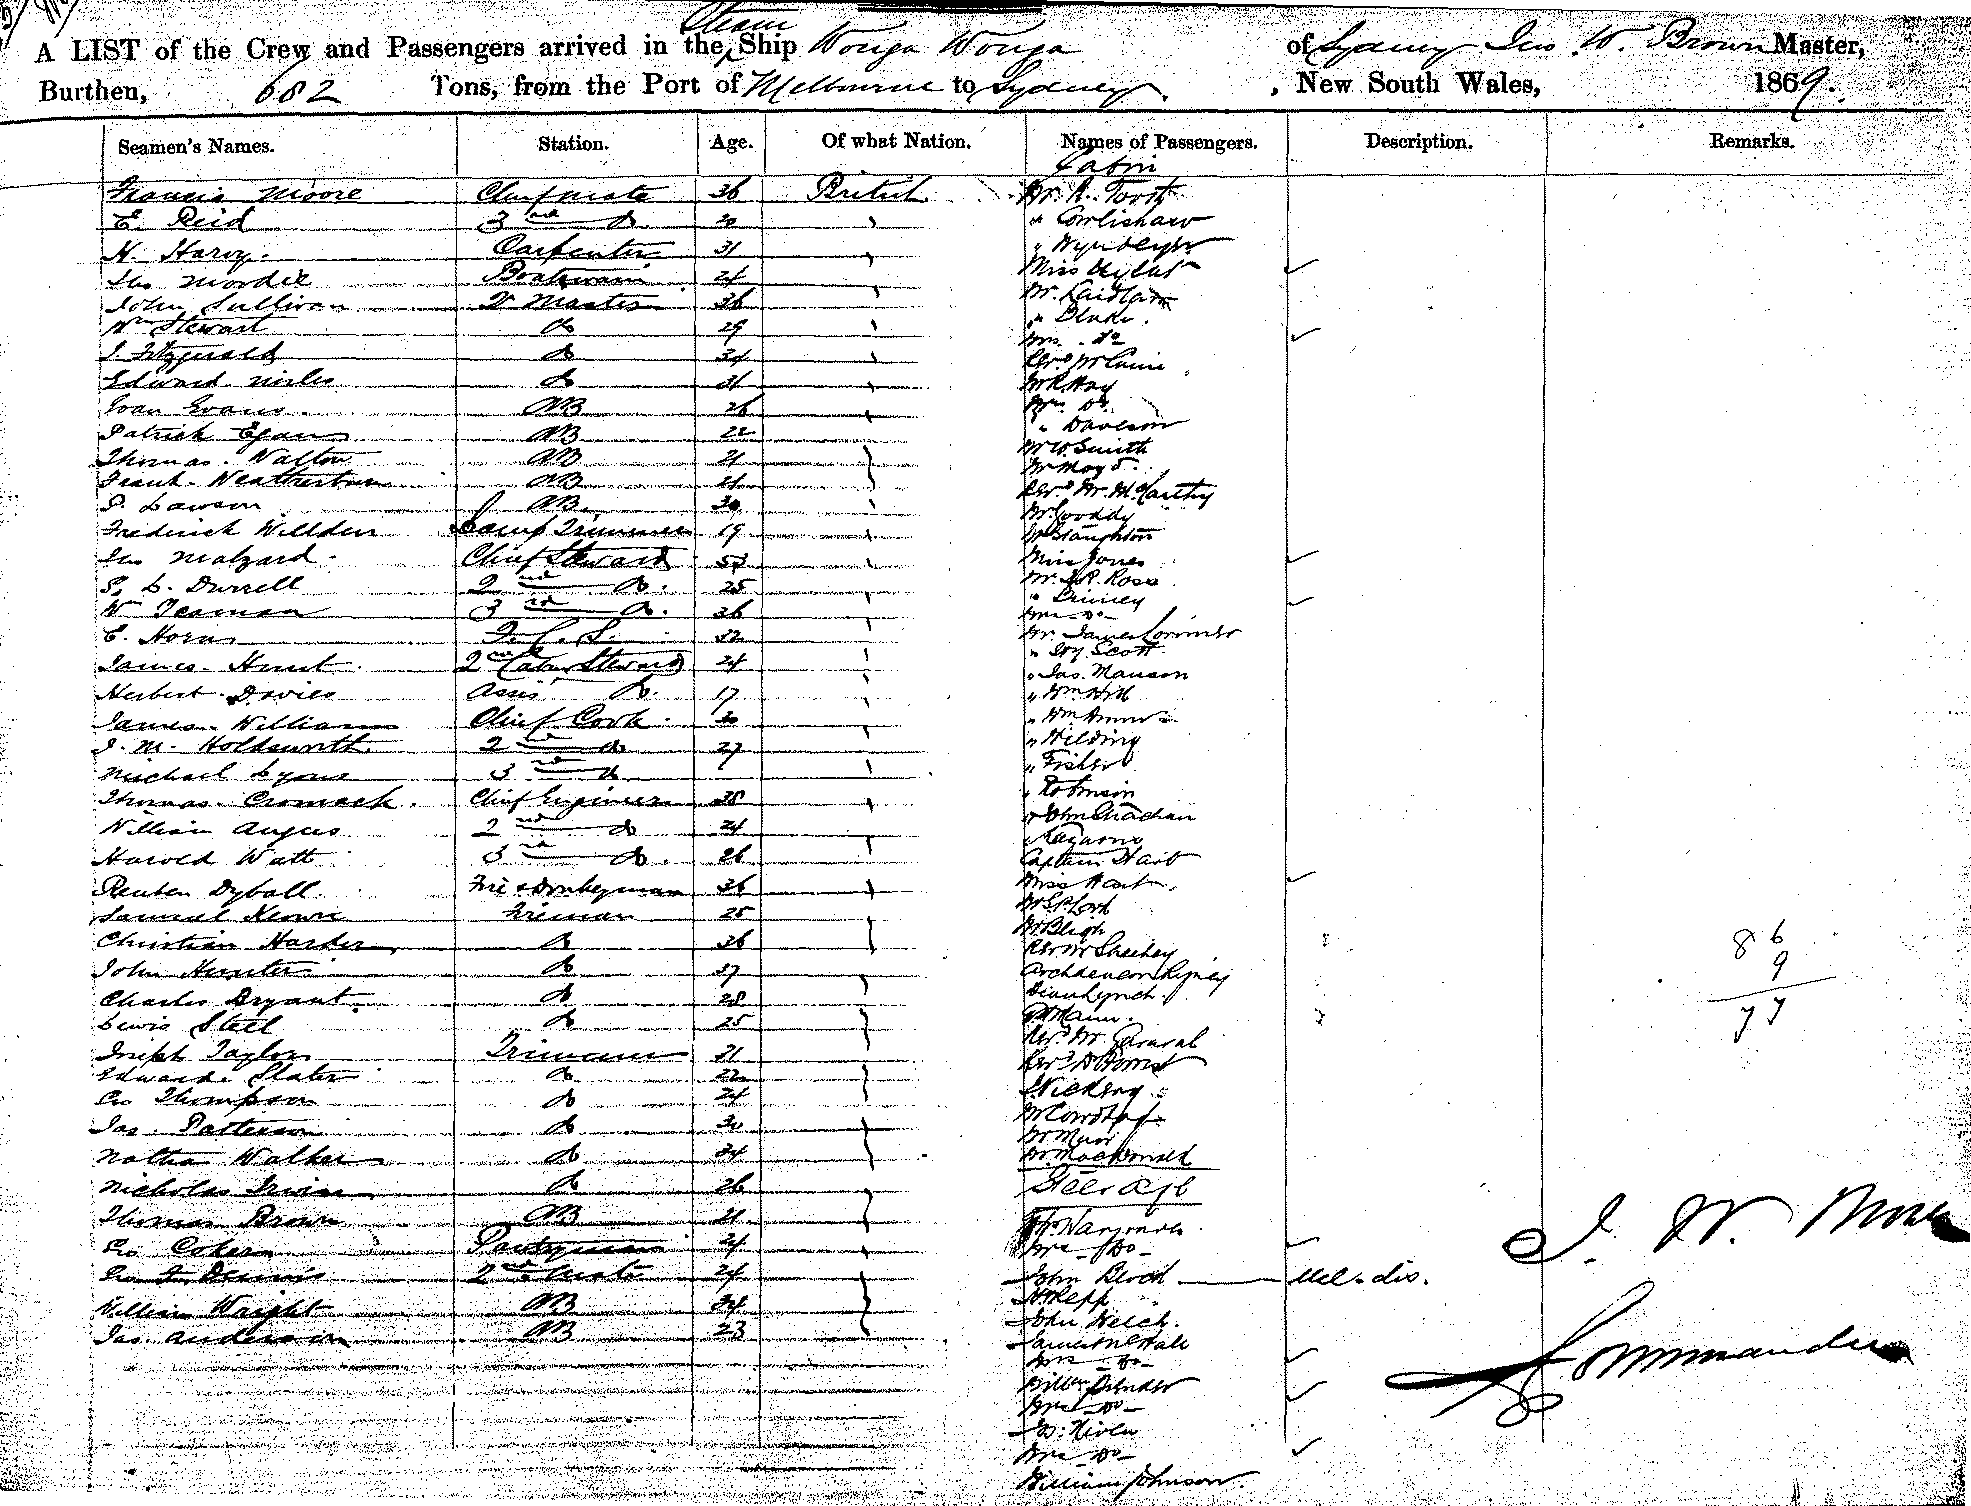 Steam
A LIST of the Crew and Passengers arrived in the Ship Wonga Wonga of Sydney Jno W. Brown Master,
Burthen, 682 Tons, from the Port of Melbourne to Sydney, New South Wales, 1869.
Seamen's Names. Station. Age. Of what Nation. Names of Passengers. Description. Remarks.
Cabin
Francis Moore Chief Mate 36 British Mr. R. Tooth
E. Reid 3rd Do. 20 " Cowlishaw
H. Harvy. Carpenter 31 "
Jno Boatswain 24 Miss
John Sullivan Qr Master 36 Mr. Laidlaw
Wm Stewart Do 29 " Blake.
J. Fitzgerald Do 34 Mrs. Do
Edward Miles Do 31 Revd
Evan Evans. AB 26 Mr R Hay
Patrick Egan AB 22 Mrs. Do.
Thomas. Walton AB 21 " Davison
Frank. Weatherton AB 21 Mr W. Smith
P. Lawson AB. 30 Mr
Frederick Willden Lamp Trimmer 19 Revd Mr. McCarthy
Jno Malzard. Chief Steward Mr
S. L. Durrell 2nd Do. 25 Mr Staughton
W Yeoman 3rd Do. 36 Miss Jones
E. Horn F. C. S. 32 Mr. J. R. Ross
James. Hunt. 2nd Cabin Steward 24 "
Herbert. Davies Assis Do. 17 Mrs Do
James. William Chief Cook. 30 Mr. James Lorimer
J. M. Holdsworth 2nd Do 27 " Scott
Michael Lyons 3rd Do " Jas. Manson
Thomas. Cromack. Chief Engineer 38 " Wm Hill
William Angus 2nd Do 24 " Wm
Harold Watt 3rd Do. 26 " Hilding
Reuben Dyball. Fire & Donkeyman 36 " Fisher
Samuel Keown Fireman 25 " Robinson
Christian Harder, Do 36 " John Strachan
John Hunter Do 37 "
Charles Bryant. Do 28 Captain Hart
Lewis Steel Do 25 Miss Hart
Joseph Taylor Trimmer 21 Mr S. P. Lord
Edward. Slater Do 22 Mr Bligh
Geo Thompson Do 24 Rev Mr Sheehey
Jas. Patterson Do 30 Archdeacon Rigney
Nathan Walker Do 34 Dean Lynch.
Nicholas Irwin Do 26
Thomas Brown AB 21 Revd Mr.
Geo Coker Pantryman 24 Revd
Geo F. Dennis 2nd Mate 24
William Wright AB 34 Mr
Jas. Anderson AB 23 Mr Muir
Mr. Macdonald
Steerage
Mrs Do
John Birch Mel. dis.
H Repp
John Welch.
James
Mrs Do
Mrs Do
Jas. Niven
Mrs Do
William Johnson.
86
9
77
J. W. Brown
Commander